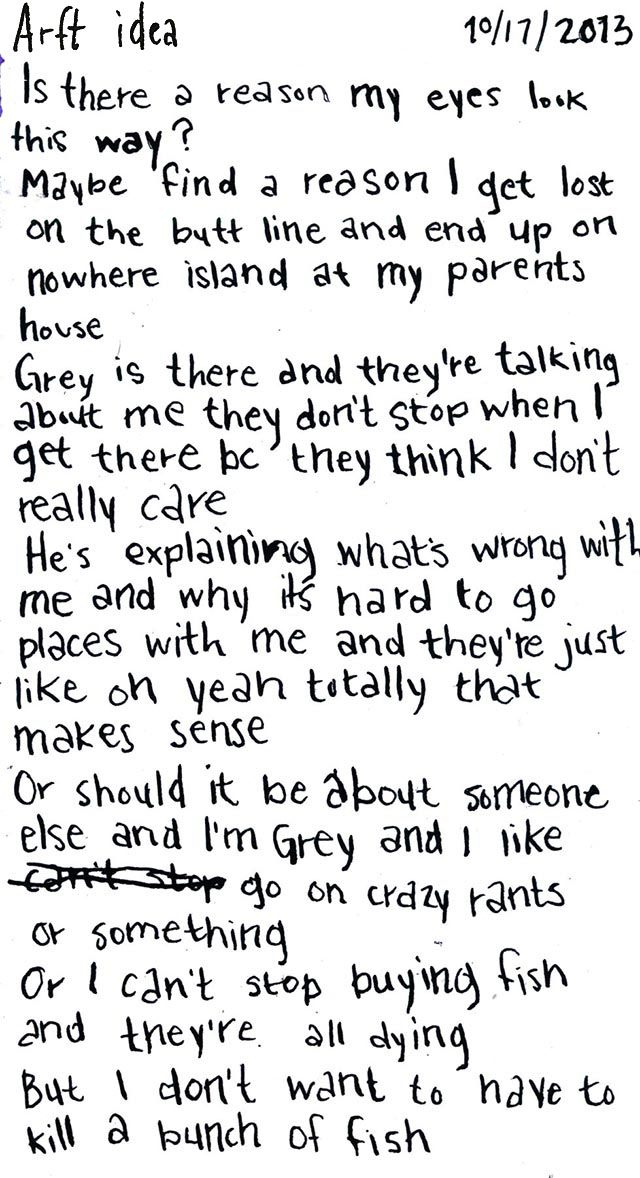 Arft idea 10/17/2013
Is there a reason my eyes look
this way?
Maybe find a reason I get lost
on the butt line and end up on
nowhere island at my parents
house
Grey is there and they're talking
about me they don't stop when I
get there bc they think I don't
really care
He's explaining what's wrong with
me and why it's hard to go
places with me and they're just
like oh yeah totally that
makes sense
Or should it be about someone
else and I'm Grey and I like
can't stop go on crazy rants
or something
Or I can't stop buying fish
and they're all dying
But I don't want to have to
kill a bunch of fish